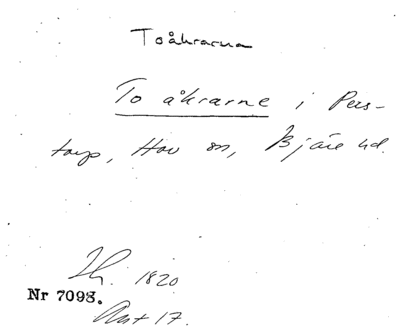 Toåkrarna
To åkrarne i Pers-
torp, Hov sn, Bjäre hd.
Th. 1820
Nr 7098.
Akt 17.